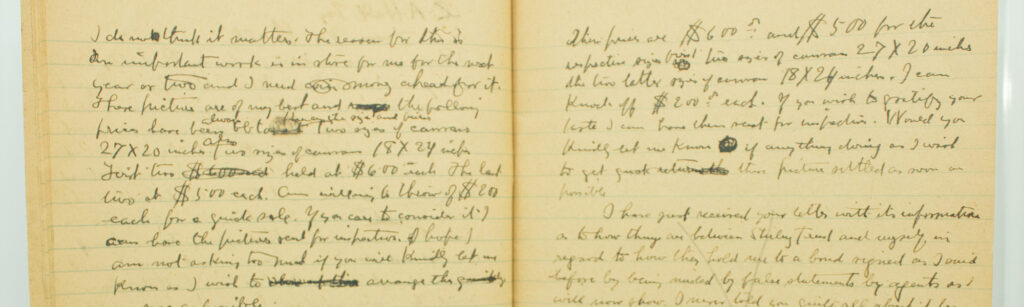 I do not think it matters. The reason for this is
An important work is in store for me for the next
year or two and I need money ahead for it.
These picture are of my best and the following
prices have been two sizes of canvas
27 X 20 inches two sizes of canvas 18 X 24 inches
First two held at $600 each The last
two at $500 each. Am willing to throw off $200
each for a quick sale. If you care to consider it I
can have the pictures sent for inspection. I hope I
am not asking too much if you will kindly let me
know as I wish to arrange the
as possible
Their prices are $600 and $500 for the
respective sizes first two sizes of canvas 27 X 20 inches
the two latter sizes of canvas 18 X 24 inches. I can
knock off $200 each. If you wish to gratify your
taste I can have them sent for inspection. Would you
kindly let me know if anything doing as I wish
to get quick this picture settled as soon as
possible
I have just received your letter with its information
as to how things are between and myself in
regard to how they hold me to a bond signed as I said
before by being misled by false statements by agents as I
will now show. I never told you quite all about it